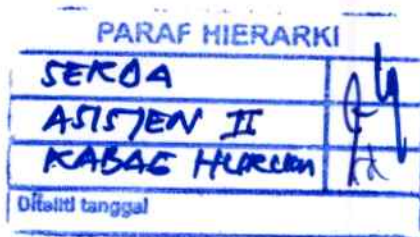 PARAF HIERARKI
SEKDA
ASISTEN II
KABAG HUKUM
Diteliti tanggal